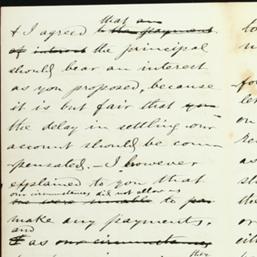 that an
& I agreed to the payment
of interest the principal
should bear an interest
as you proposed, because
it is but fair that you
the delay in settling our
account should be com-
pensated. - I however
explained to you that
our circumstances did not allow us
we were unable to pay
make any payments,
and
I as our circumstances
they